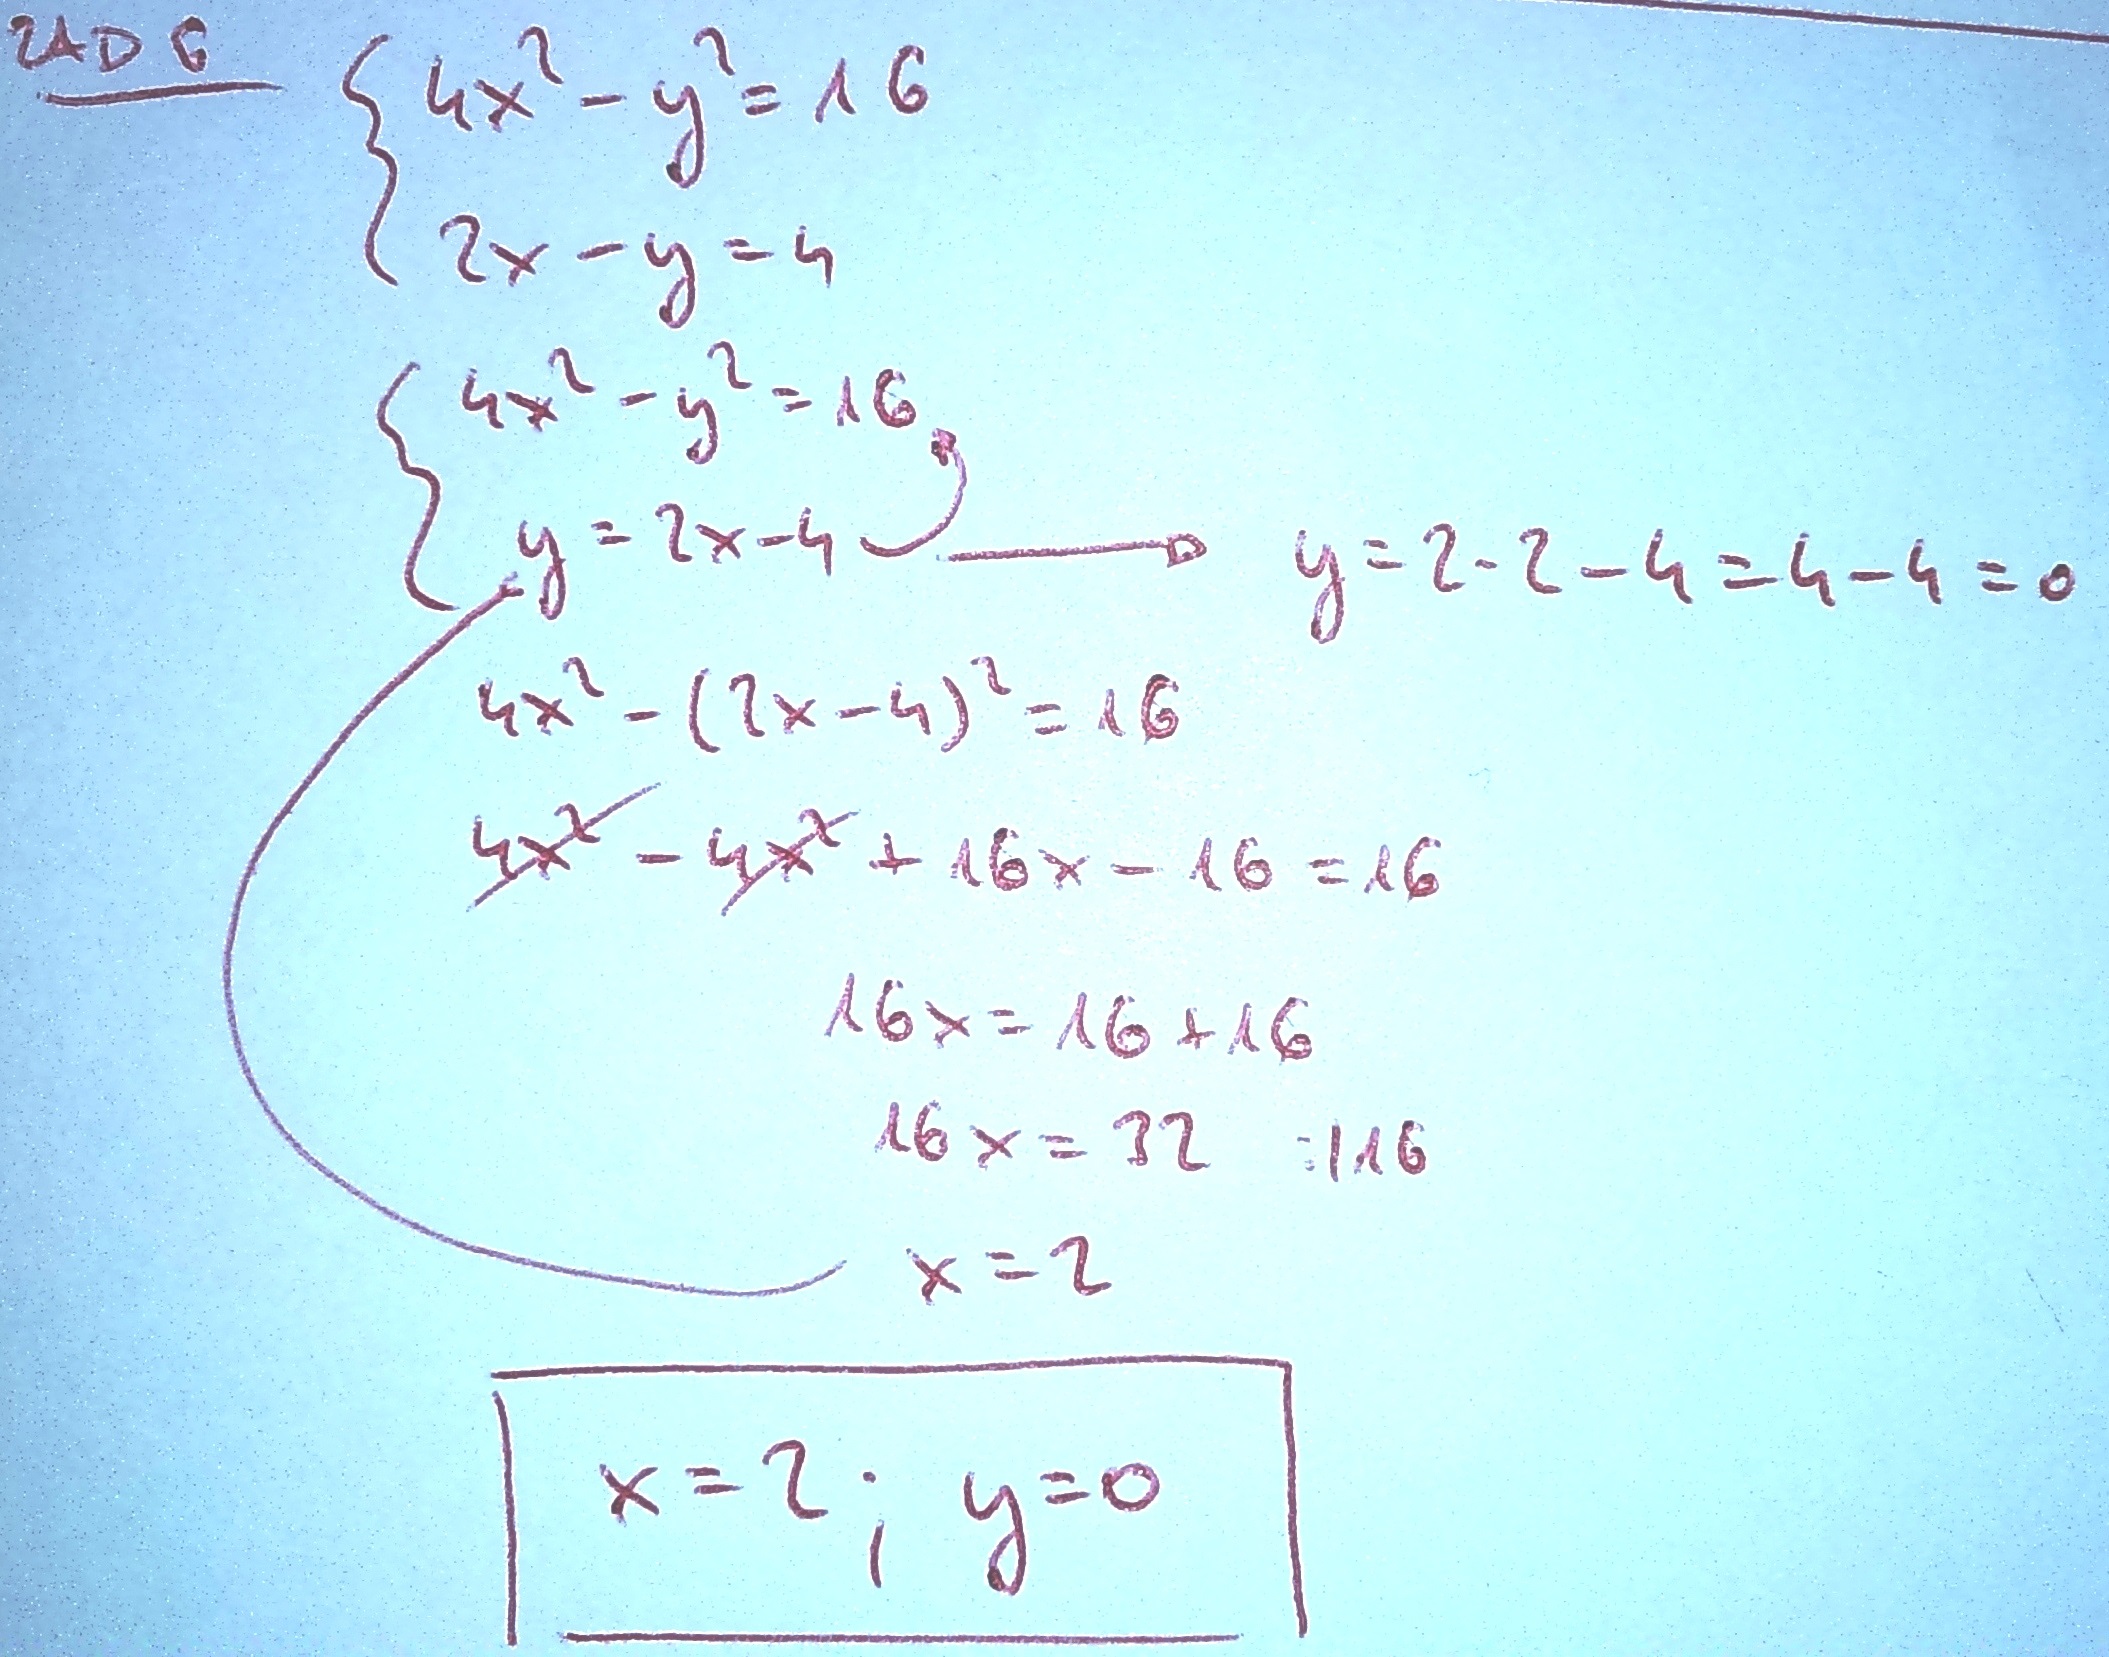 ZAD 6
4x² - y² = 16
2x - y = 4
4x² - y² = 16
y = 2x - 4 → y = 2·2 - 4 = 4 - 4 = 0
4x² - (2x - 4)² = 16
4x² - 4x² + 16x - 16 = 16
16x = 16 + 16
16x = 32 :|16
x = 2
x = 2 ; y = 0